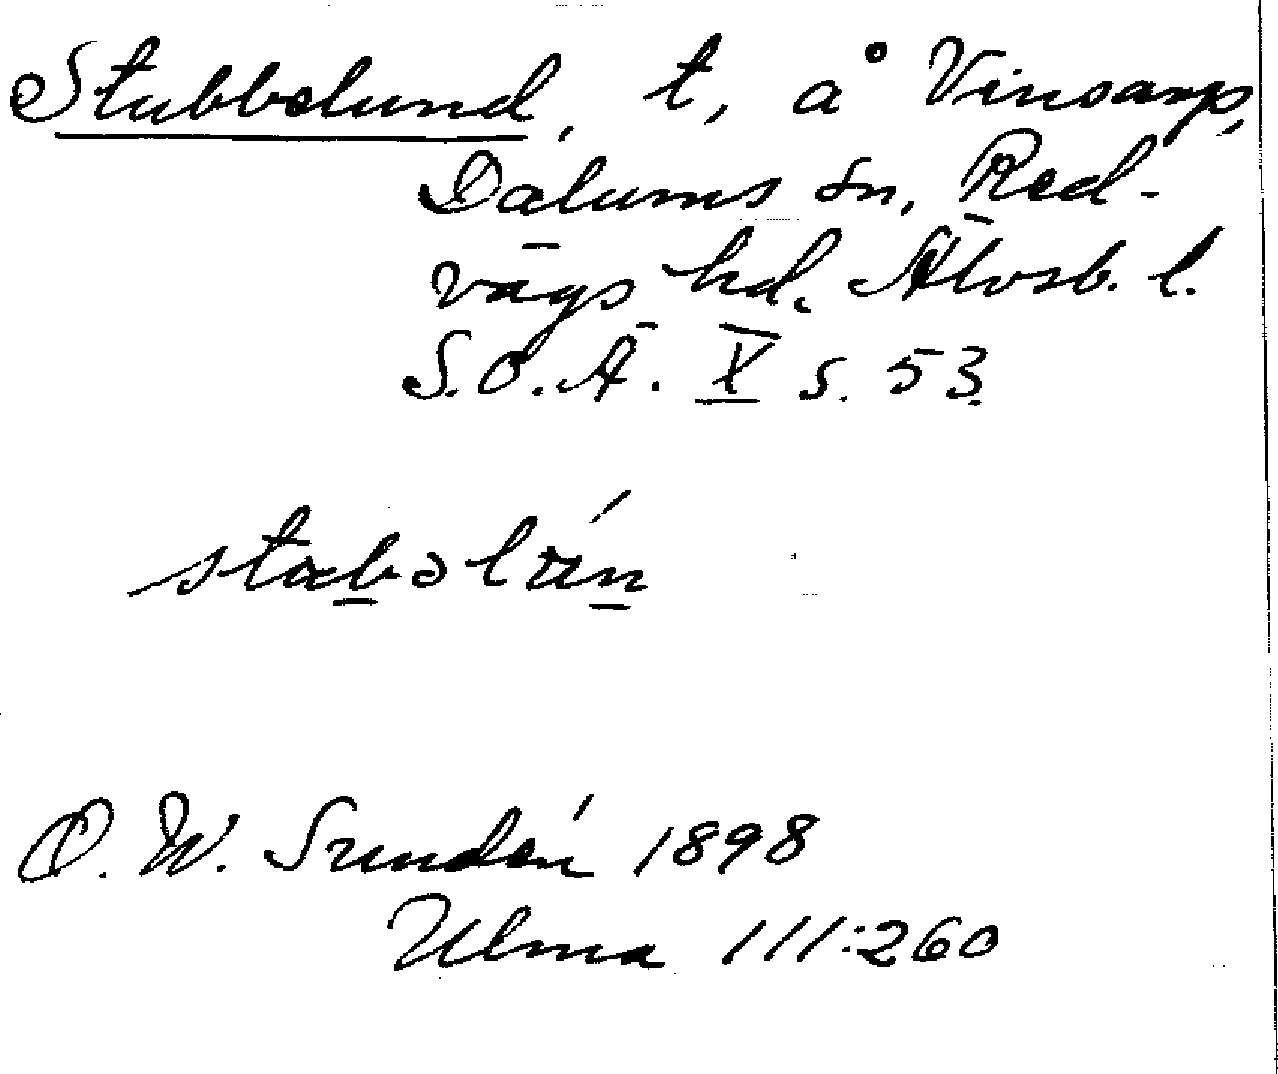 Stubbelund, t, å Vinsarp,
Dalums sn, Red-
vägs hd. Älvsb. l.
S.O.Ä. X s. 53
D. W. Sundén 1898
Ulma 111:260